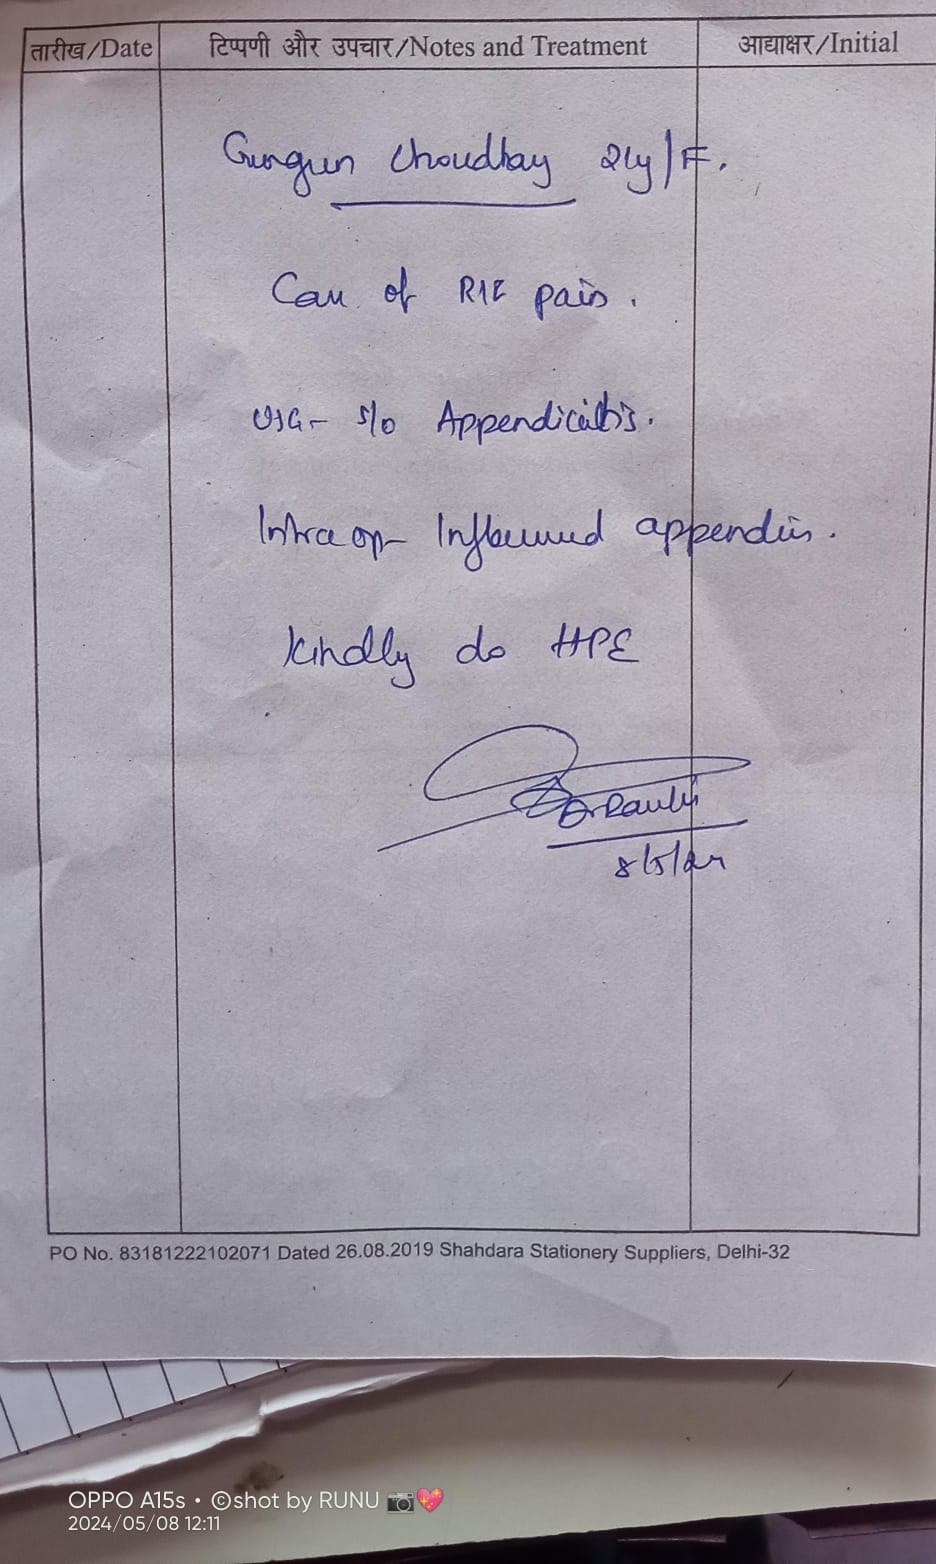 तारीख/Date टिप्पणी और उपचार/Notes and Treatment आद्याक्षर/Initial
Gungun Choudhay 21y/F.
Case of RIF pain.
USG- s/o Appendicitis.
Intra op- Inflammed appendix.
Kindly do HPE
8/5/24
PO No. 83181222102071 Dated 26.08.2019 Shahdara Stationery Suppliers, Delhi-32
OPPO A15s • ©shot by RUNU 📷💖
2024/05/08 12:11